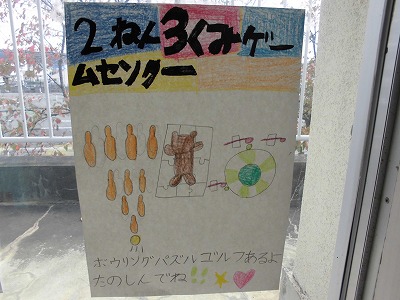 2ねん3くみゲー
ムセンター
ボウリングパズルゴルフあるよ
たのしんでね